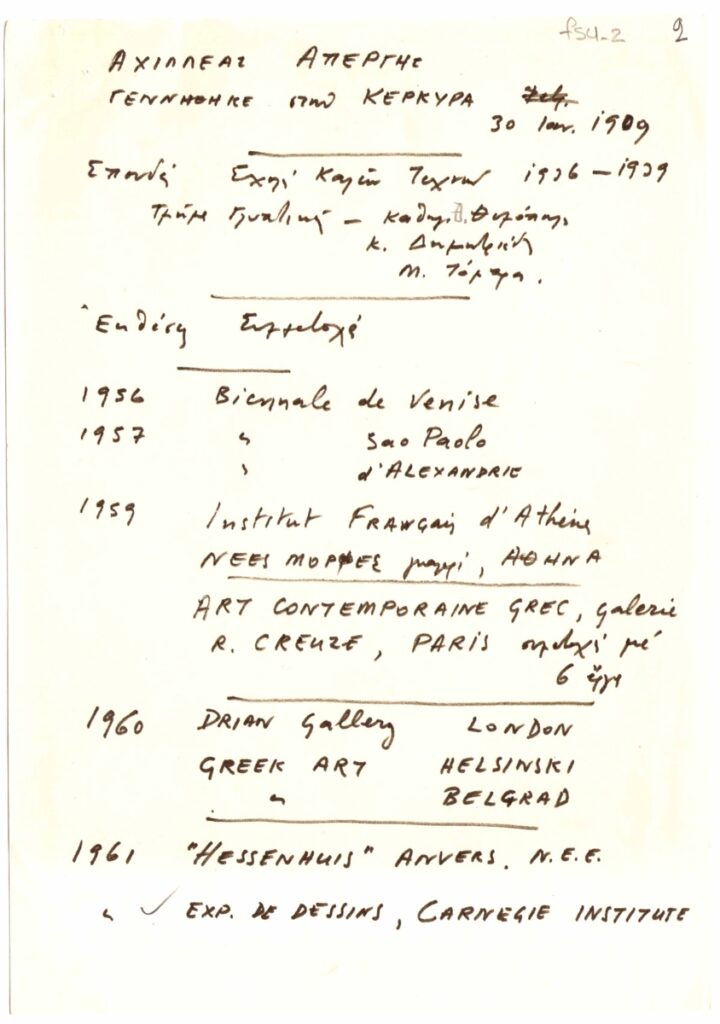 fs4-2 2
ΑΧΙΛΛΕΑΣ ΑΠΕΡΓΗΣ
ΓΕΝΝΗΘΗΚΕ στην ΚΕΡΚΥΡΑ
30 Ιαν. 1909
Σπουδές Σχολή Καλών Τεχνών 1936 – 1939
Τμήμα Γλυπτικής – Καθηγ. Θ. Θωμόπουλος
Κ. Δημητριάδης
Μ. Τόμπρος.
Εκθέσεις Συμμετοχές
1956 Biennale de Venise
1957 " Sao Paolo
" d'ALEXANDRIE
1959 Institut FRANÇais d'Athènes
NEES MOPΦEΣ , ΑΘΗΝΑ
ART CONTEMPORAINE GREC, galerie
R. CREUZE, PARIS συμμετοχή μέ
6 ἔργα
1960 DRIAN Gallery LONDON
GREEK ART HELSINSKI
" BELGRAD
1961 "HESSENHUIS" ANVERS. N.E.E.
" ✓ EXP. DE DESSINS, CARNEGIE INSTITUTE